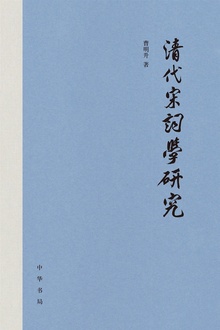 清代宋詞學研究
曹明升 著
中華書局